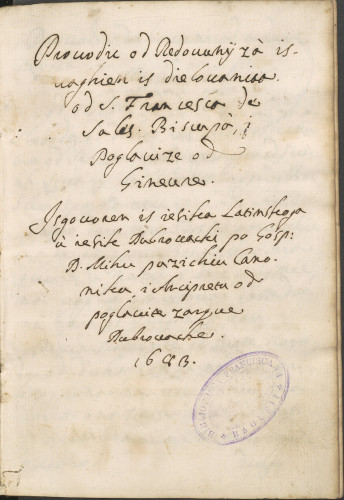 Provodic od Redovnijzà is-
vaghien is dielovanita
od S. Francesca de
Sales. Biscupà, i
Poglavize od
Ginevre.
Isgovoren is iesika Latinskoga
u iesik Dubrovacki po Gosp:
D. Mihu pazichiu Cano-
niku i Arcipretu od
poglavite zarque
Dubrovacke.
1683.